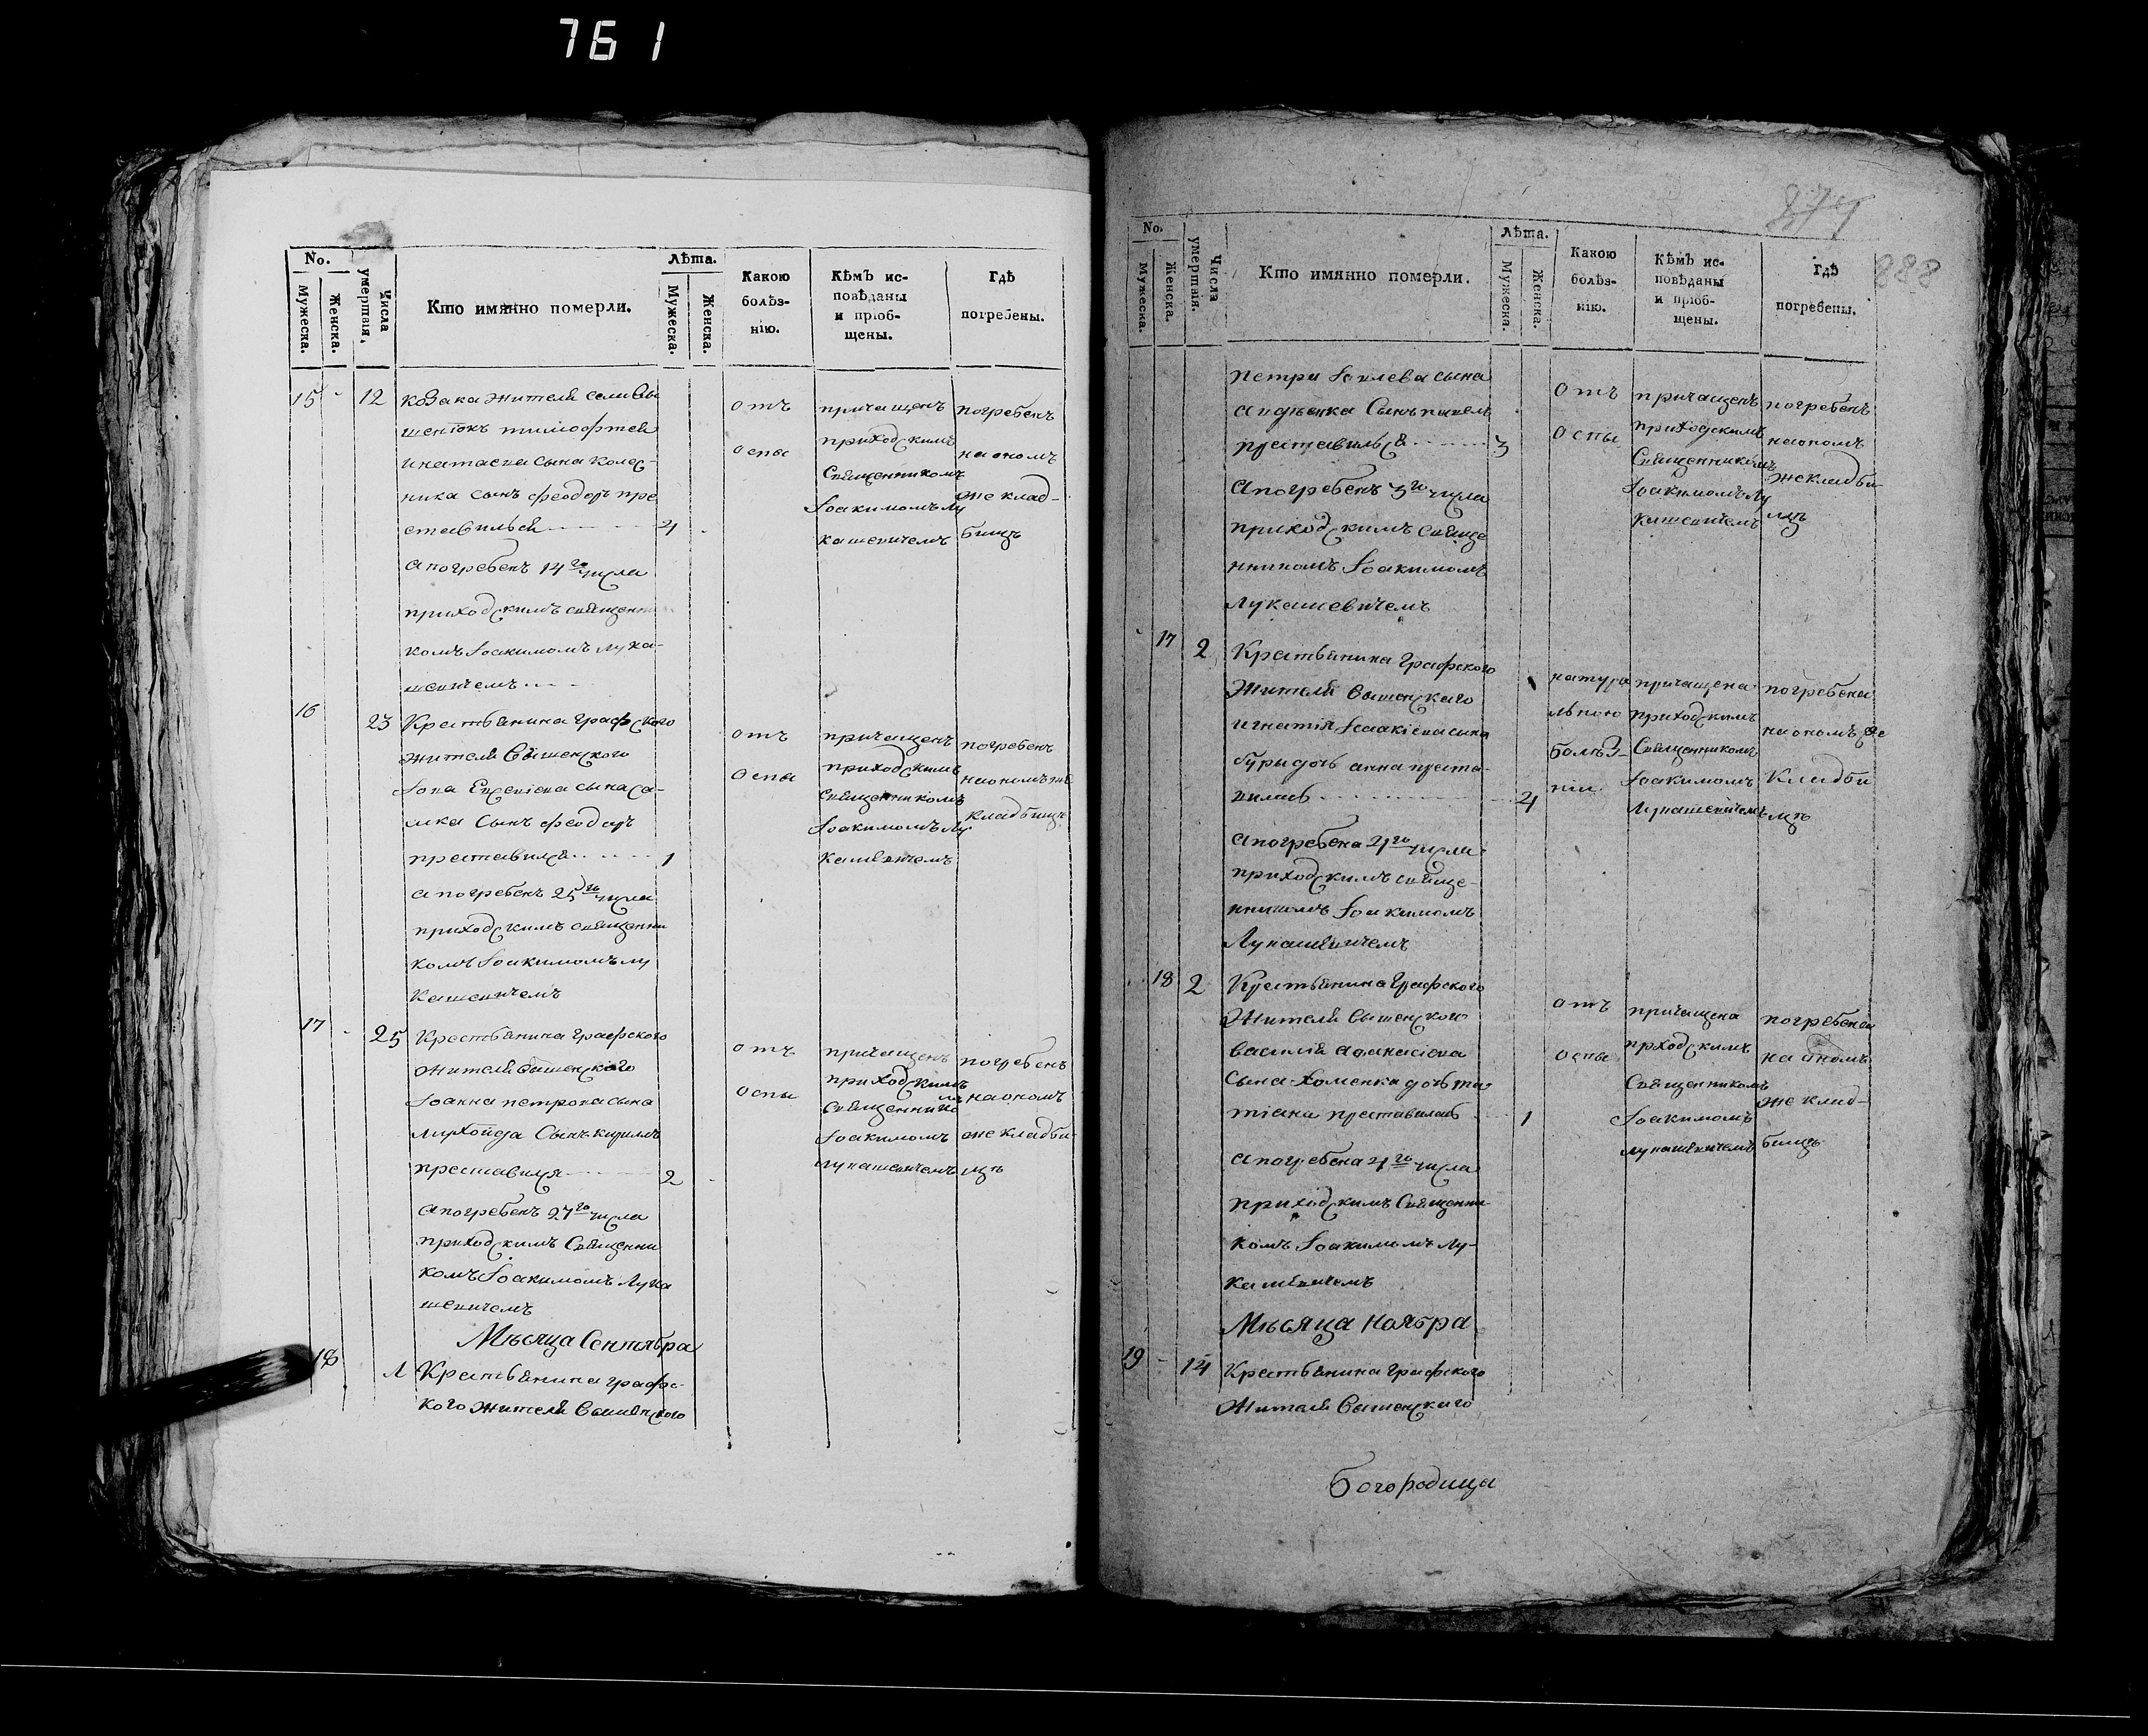 761
No.
Мужеска.
Женска.
Числа умертвія.
Кто имянно померли.
Лѣта.
Мужеска.
Женска.
Какою болѣз-
нію.
Кѣмъ ис-
повѣданы
и пріоб-
щены.
Гдѣ
погребены.
15 - 12 козака жителя
тимофтея
сына колес-
ника сынъ феодоръ пре
ставилься 4
а погребенъ 14го числа
приходскимъ священни
комъ Іоакимомъ Лука-
шевичемъ
отъ
оспы
причащенъ
приходскимъ
священникомъ
Іоакимомъ Лу
кашевичемъ
погребенъ
на ономъ
же клад-
бищѣ
16 23 Крестьянина графского
жителя вышенского
сына са-
сынъ феодоръ
преставился 1
а погребенъ 25го числа
приходскимъ священни
комъ Іоакимомъ лу
кашевичемъ
отъ
оспы
причащенъ
приходскимъ
священникомъ
Іоакимомъ Лу
кашевичемъ
погребенъ
на ономъ же
кладбищѣ
17 - 25 Крестьянина графского
жителя вышенского
Іоанна петрова сына
сынъ
преставился 2
а погребенъ 27го числа
приходскимъ священни
комъ Іоакимомъ Лука
шевичемъ
отъ
оспы
причащенъ
приходскимъ
священнико
мъ
Іоакимомъ
лукашевичемъ
погребенъ
на ономъ
же кладби
щѣ
Мѣсяца Сентября
18 1 Крестьянина графс-
кого жителя вышенского
874
888
No.
Мужеска.
Женска.
Числа умертвія.
Кто имянно померли.
Лѣта.
Мужеска.
Женска.
Какою
болѣз-
нію.
Кѣмъ ис-
повѣданы
и пріоб-
щены.
Гдѣ
погребены.
петра сына
сынъ павелъ
преставилься 3
а погребенъ 3го числа
приходскимъ свяще
нникомъ Іоакимомъ
Лукашевичемъ
отъ
оспы
причащенъ
приходскимъ
священникомъ
Іоакимомъ Лу
кашевичемъ
погребенъ
на ономъ
же кладби-
щѣ
17 2 Крестьянина графского
жителя вышенскаго
игнатія Исаакіева сына
дочь анна преста-
вилась 4
а погребена 4го числа
приходскимъ свяще-
нникомъ Іоакимомъ
Лукашевичемъ
натура
льною
болѣз-
нію
причащена
приходскимъ
священникомъ
Іоакимомъ
Лукашевичемъ
погребена
на ономъ же
кладби
щѣ
18 2 Крестьянина графского
жителя вышенского
василія афанасіева
сына хоменка дочь та-
тіана преставилась 1
а погребена 4го числа
приходскимъ священни
комъ Іоакимомъ Лу-
кашевичемъ
отъ
оспы
причащена
прходскимъ
священникомъ
Іоакимомъ
лукашевичемъ
погребена
на ономъ
же клад-
бищѣ
Мѣсяца Ноября
19 - 14 Крестьянина графского
жителя вышенскаго
богородица